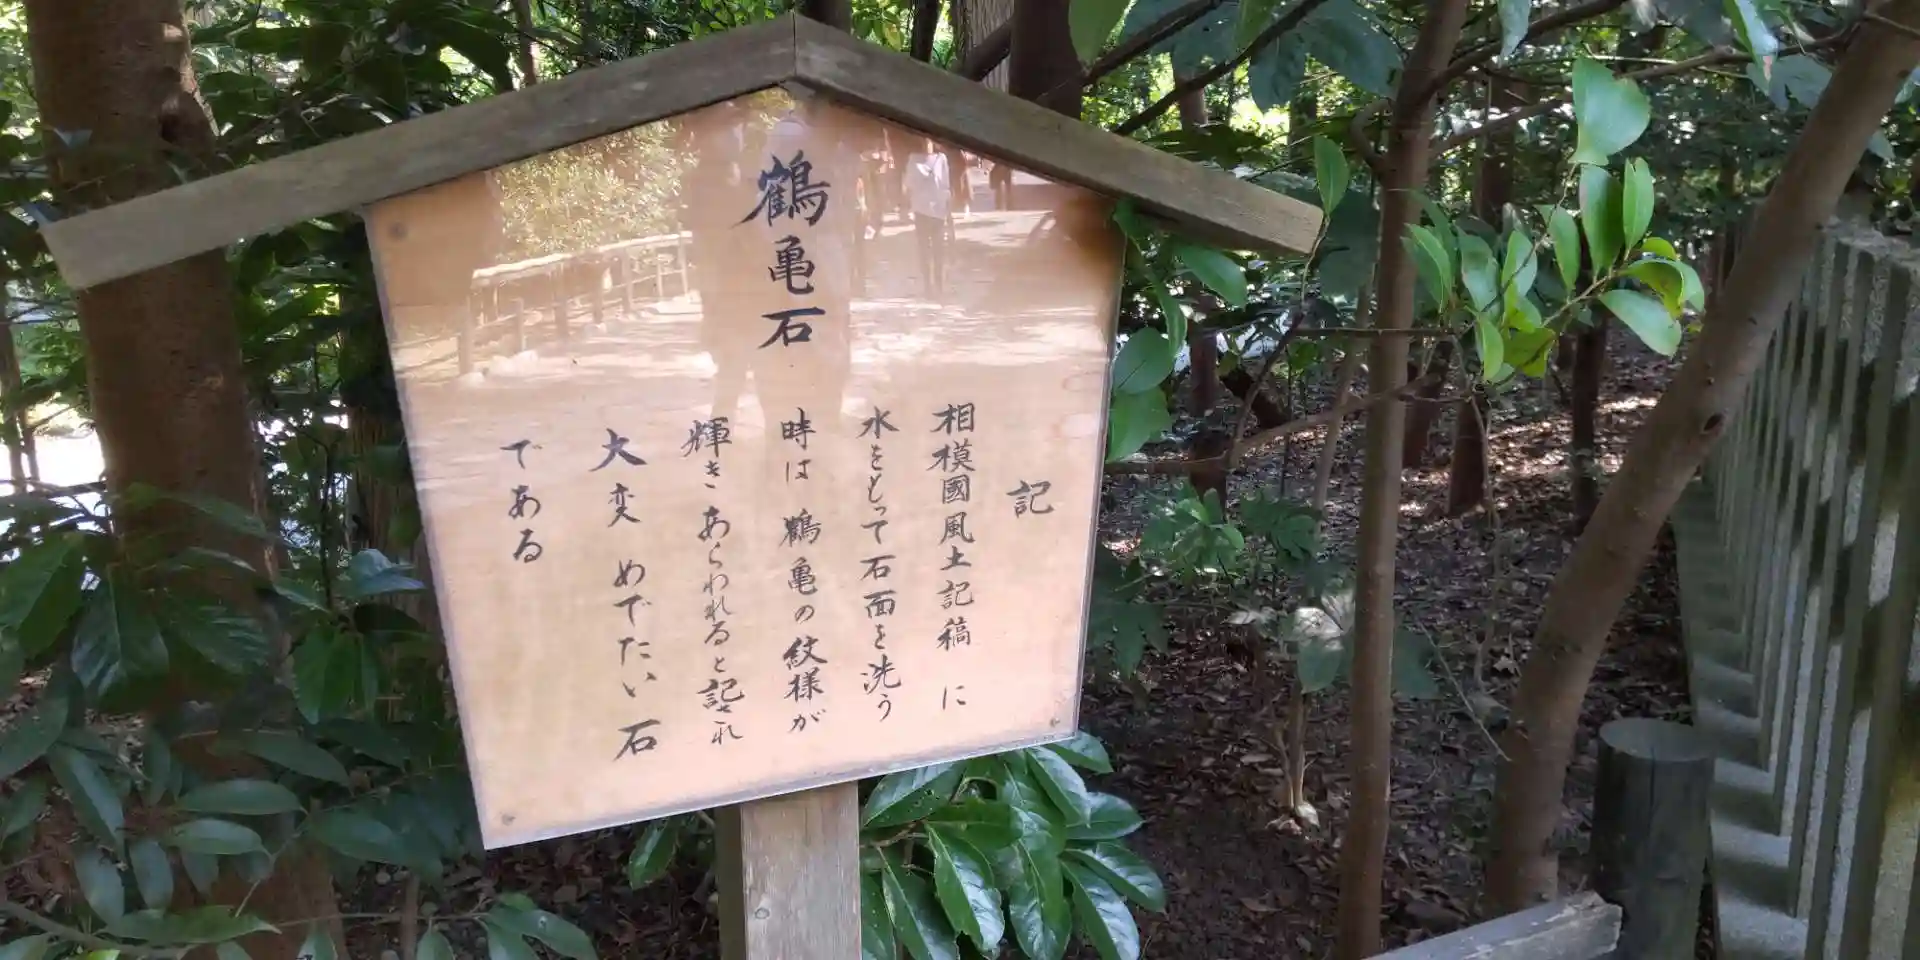 鶴亀石
記
相模國風土記稿 に
水をもって石面を洗う
時は 鶴亀の紋様が
輝きあらわれると記され
大変 めでたい石
である